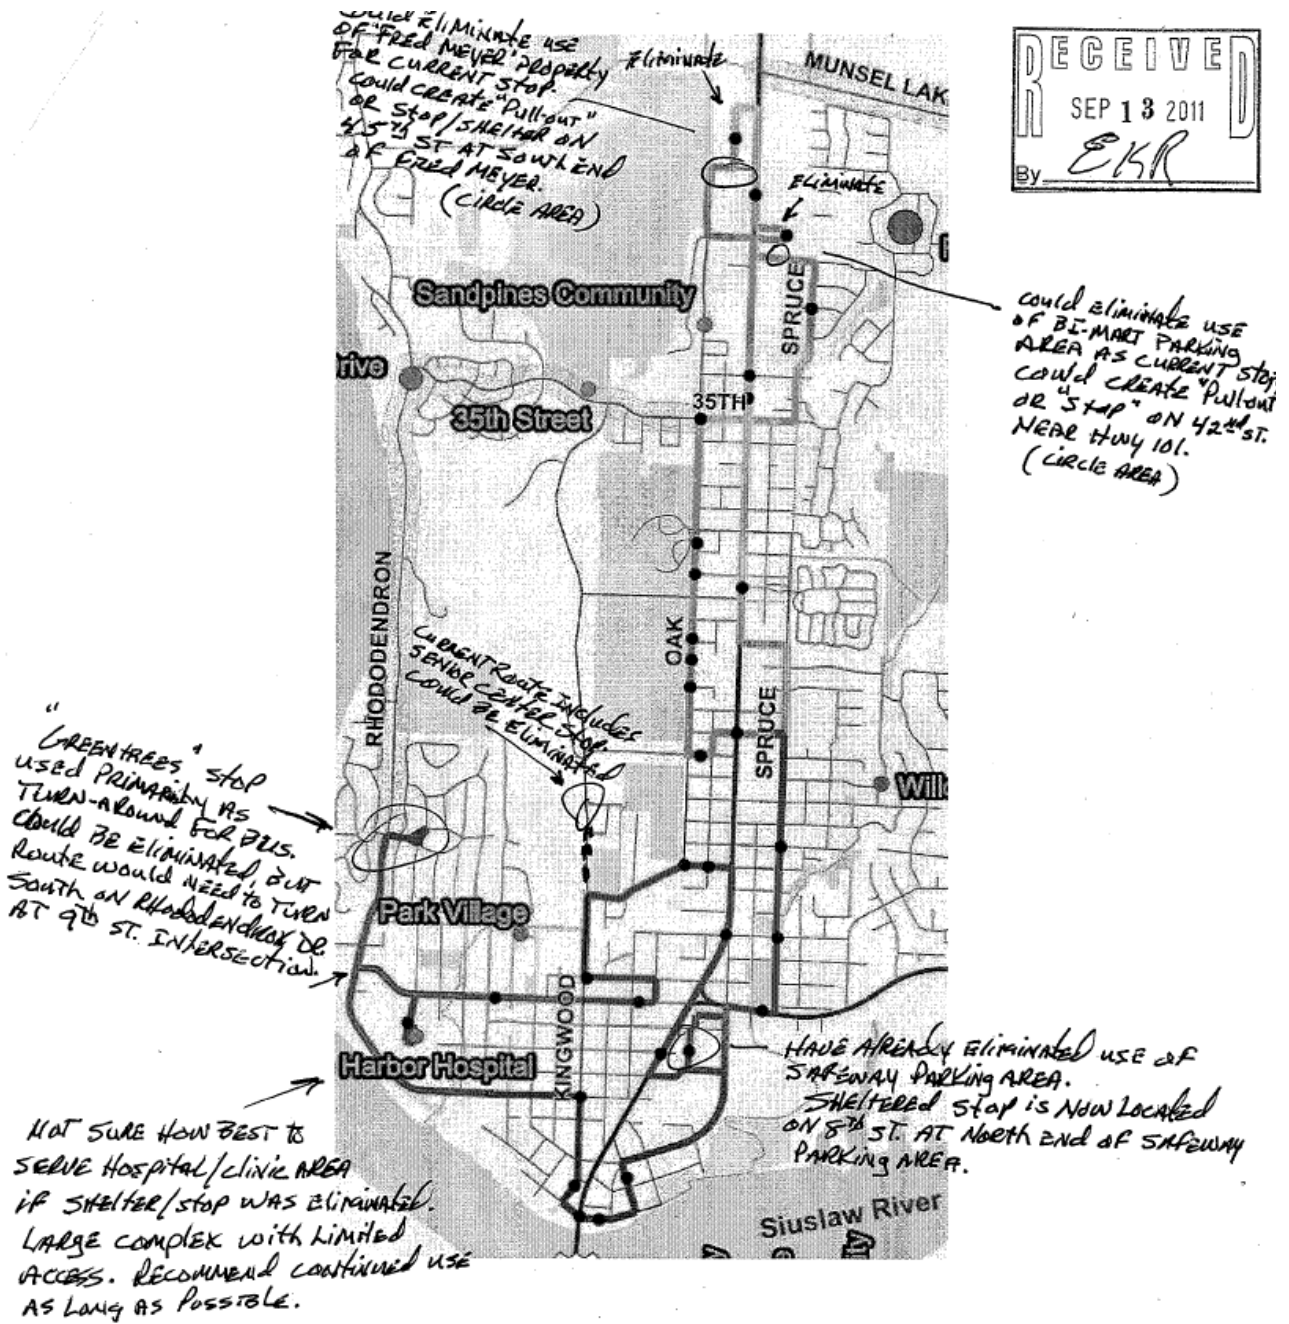 COULD ELIMINATE USE
OF "FRED MEYER" PROPERTY
FOR CURRENT STOP.
COULD CREATE "PULL-OUT"
OR STOP/SHELTER ON
45TH ST AT SOUTH END
OF FRED MEYER.
(CIRCLE AREA)
ELIMINATE
MUNSEL LAK
RECEIVED
SEP 13 2011
By EKR
ELIMINATE
Sandpines Community
SPRUCE
COULD ELIMINATE USE
OF BI-MART PARKING
AREA AS CURRENT STOP,
COULD CREATE "PULL-OUT
OR "STOP" ON 42ND ST.
NEAR HWY 101.
(CIRCLE AREA)
rive
35TH
35th Street
RHODODENDRON
OAK
CURRENT ROUTE INCLUDES
SENIOR CENTER STOP.
COULD BE ELIMINATED
SPRUCE
"GREENTREES" STOP
USED PRIMARILY AS
TURN-AROUND FOR BUS.
COULD BE ELIMINATED, BUT
ROUTE WOULD NEED TO TURN
SOUTH ON RHODODENDRON DR.
AT 9TH ST. INTERSECTION.
Willo
Park Village
KINGWOOD
Harbor Hospital
HAVE ALREADY ELIMINATED USE OF
SAFEWAY PARKING AREA.
SHELTERED STOP IS NOW LOCATED
ON 8TH ST. AT NORTH END OF SAFEWAY
PARKING AREA.
NOT SURE HOW BEST TO
SERVE HOSPITAL/CLINIC AREA
IF SHELTER/STOP WAS ELIMINATED.
LARGE COMPLEX WITH LIMITED
ACCESS. RECOMMEND CONTINUED USE
AS LONG AS POSSIBLE.
Siuslaw River